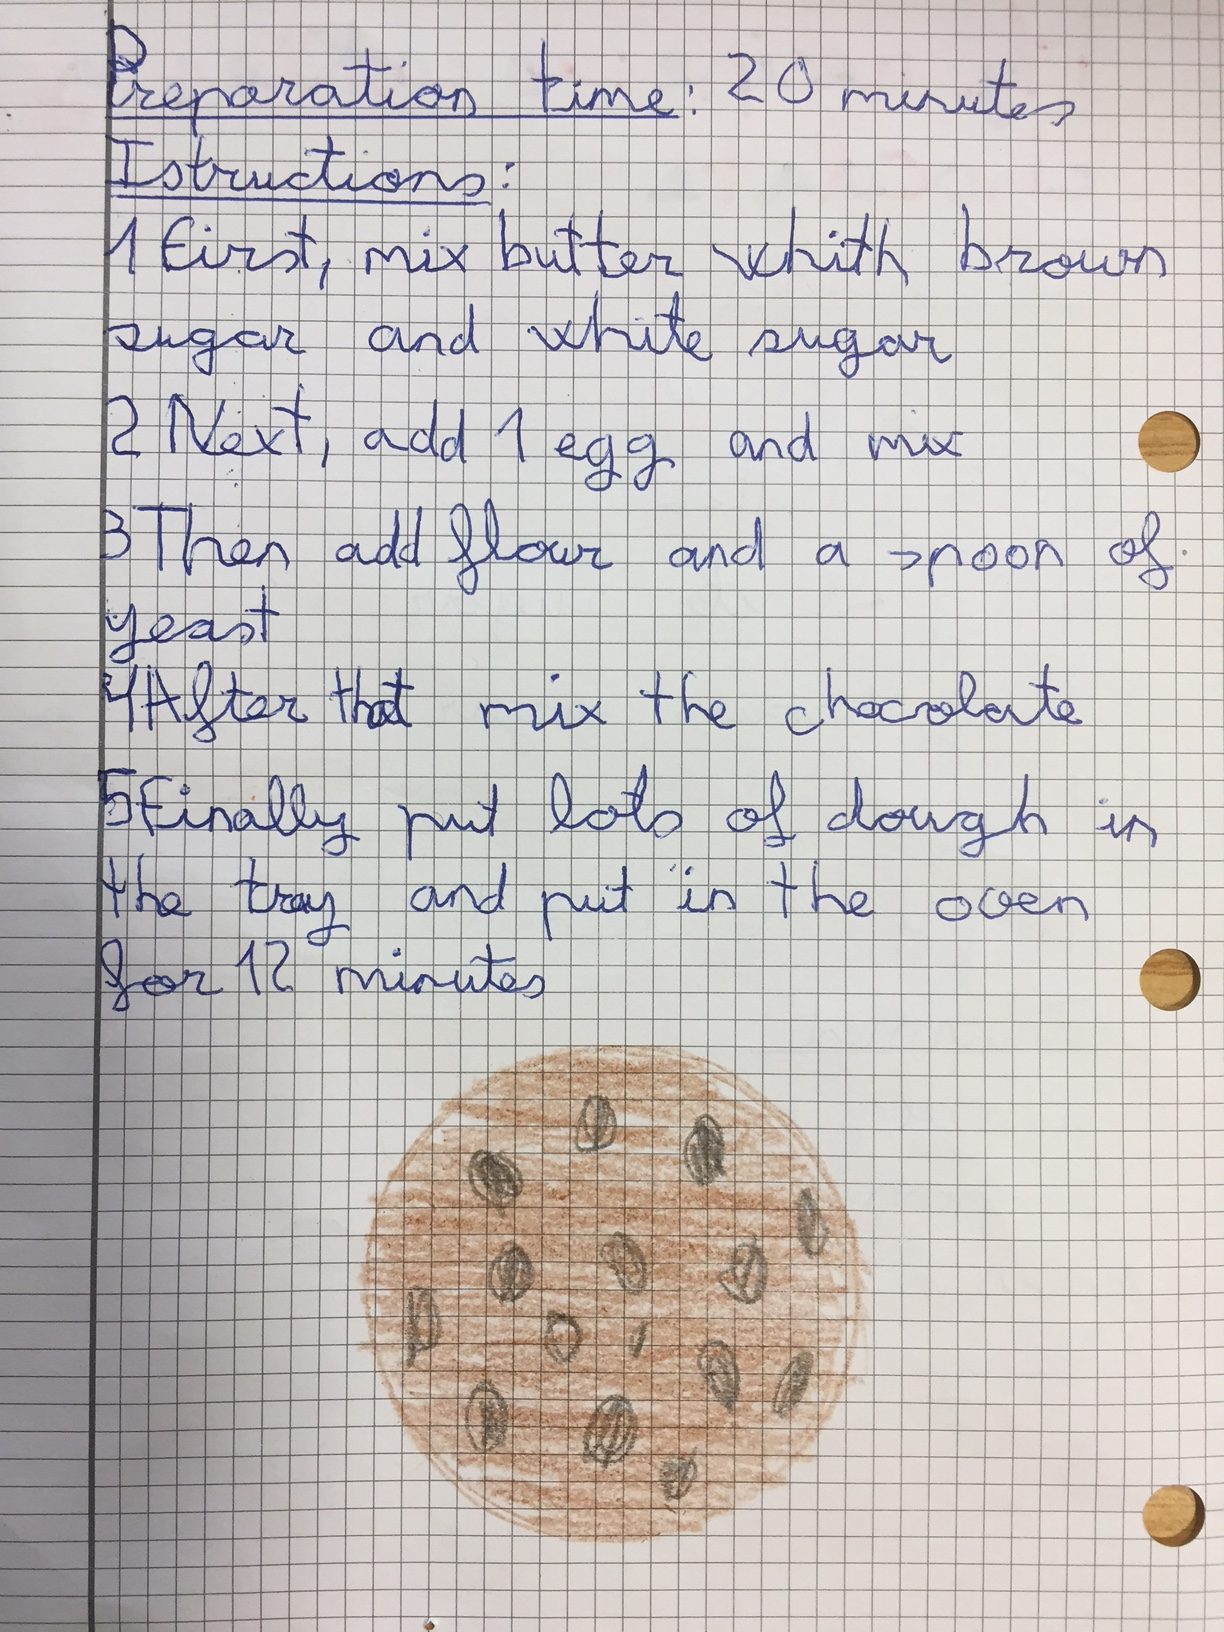 Preparation time: 20 minutes
Istructions:
1 First, mix butter whith brown
sugar and white sugar
2 Next, add 1 egg and mix
3 Then add flour and a spoon of
yeast
4 After that mix the chocolate
5 Finally put lots of dough in
the tray and put in the oven
for 12 minutes